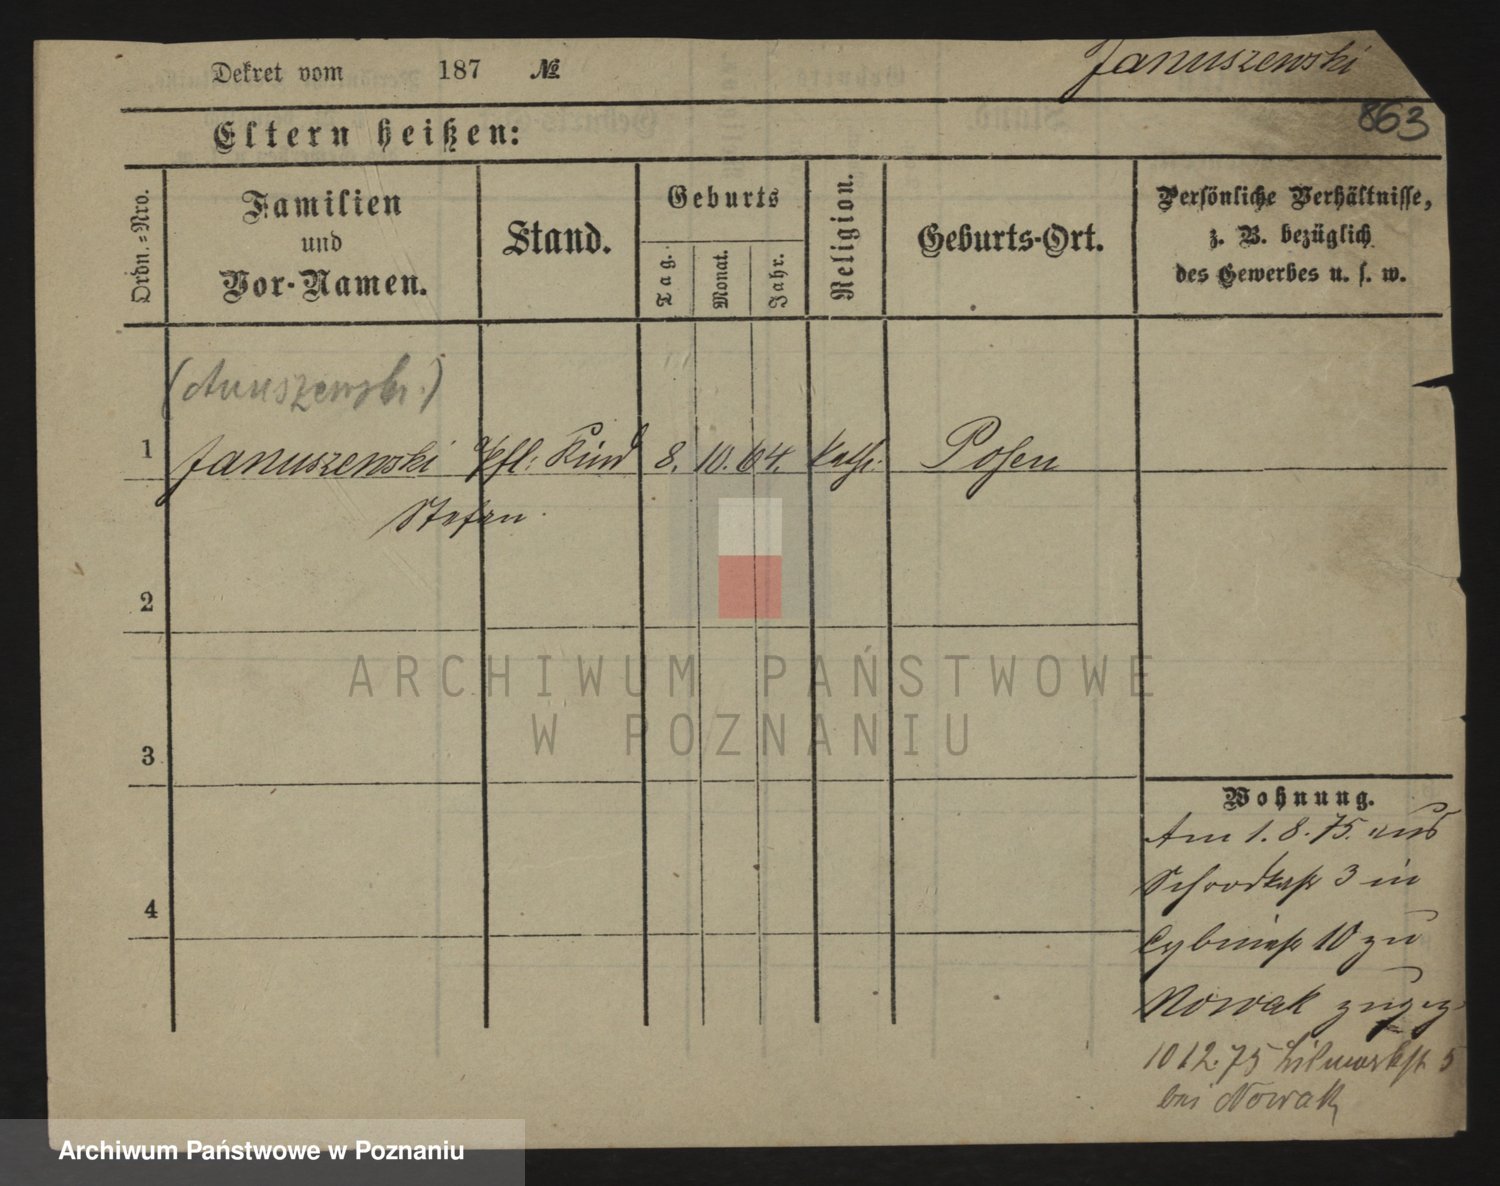 Dekret vom 187 № Januszewski
863
Eltern heißen:
Ordn.=Nro.
Familien
und
Vor-Namen.
Stand.
Geburts
Tag.
Monat.
Jahr.
Religion.
Geburts-Ort.
Persönliche Verhältnisse,
z. B. bezüglich
des Gewerbes u. s. w.
(Anuszewski.)
1 Januszewski Pfl: Kind 8. 10. 64. kath: Posen
Stefan
2
3
4
Wohnung.
Am 1. 8. 75. aus
Schrodkastr 3 in
Cybinastr 10 zu
Nowak zugez
10 12. 75 5
bei Nowak
ARCHIWUM PAŃSTWOWE
W POZNANIU
Archiwum Państwowe w Poznaniu